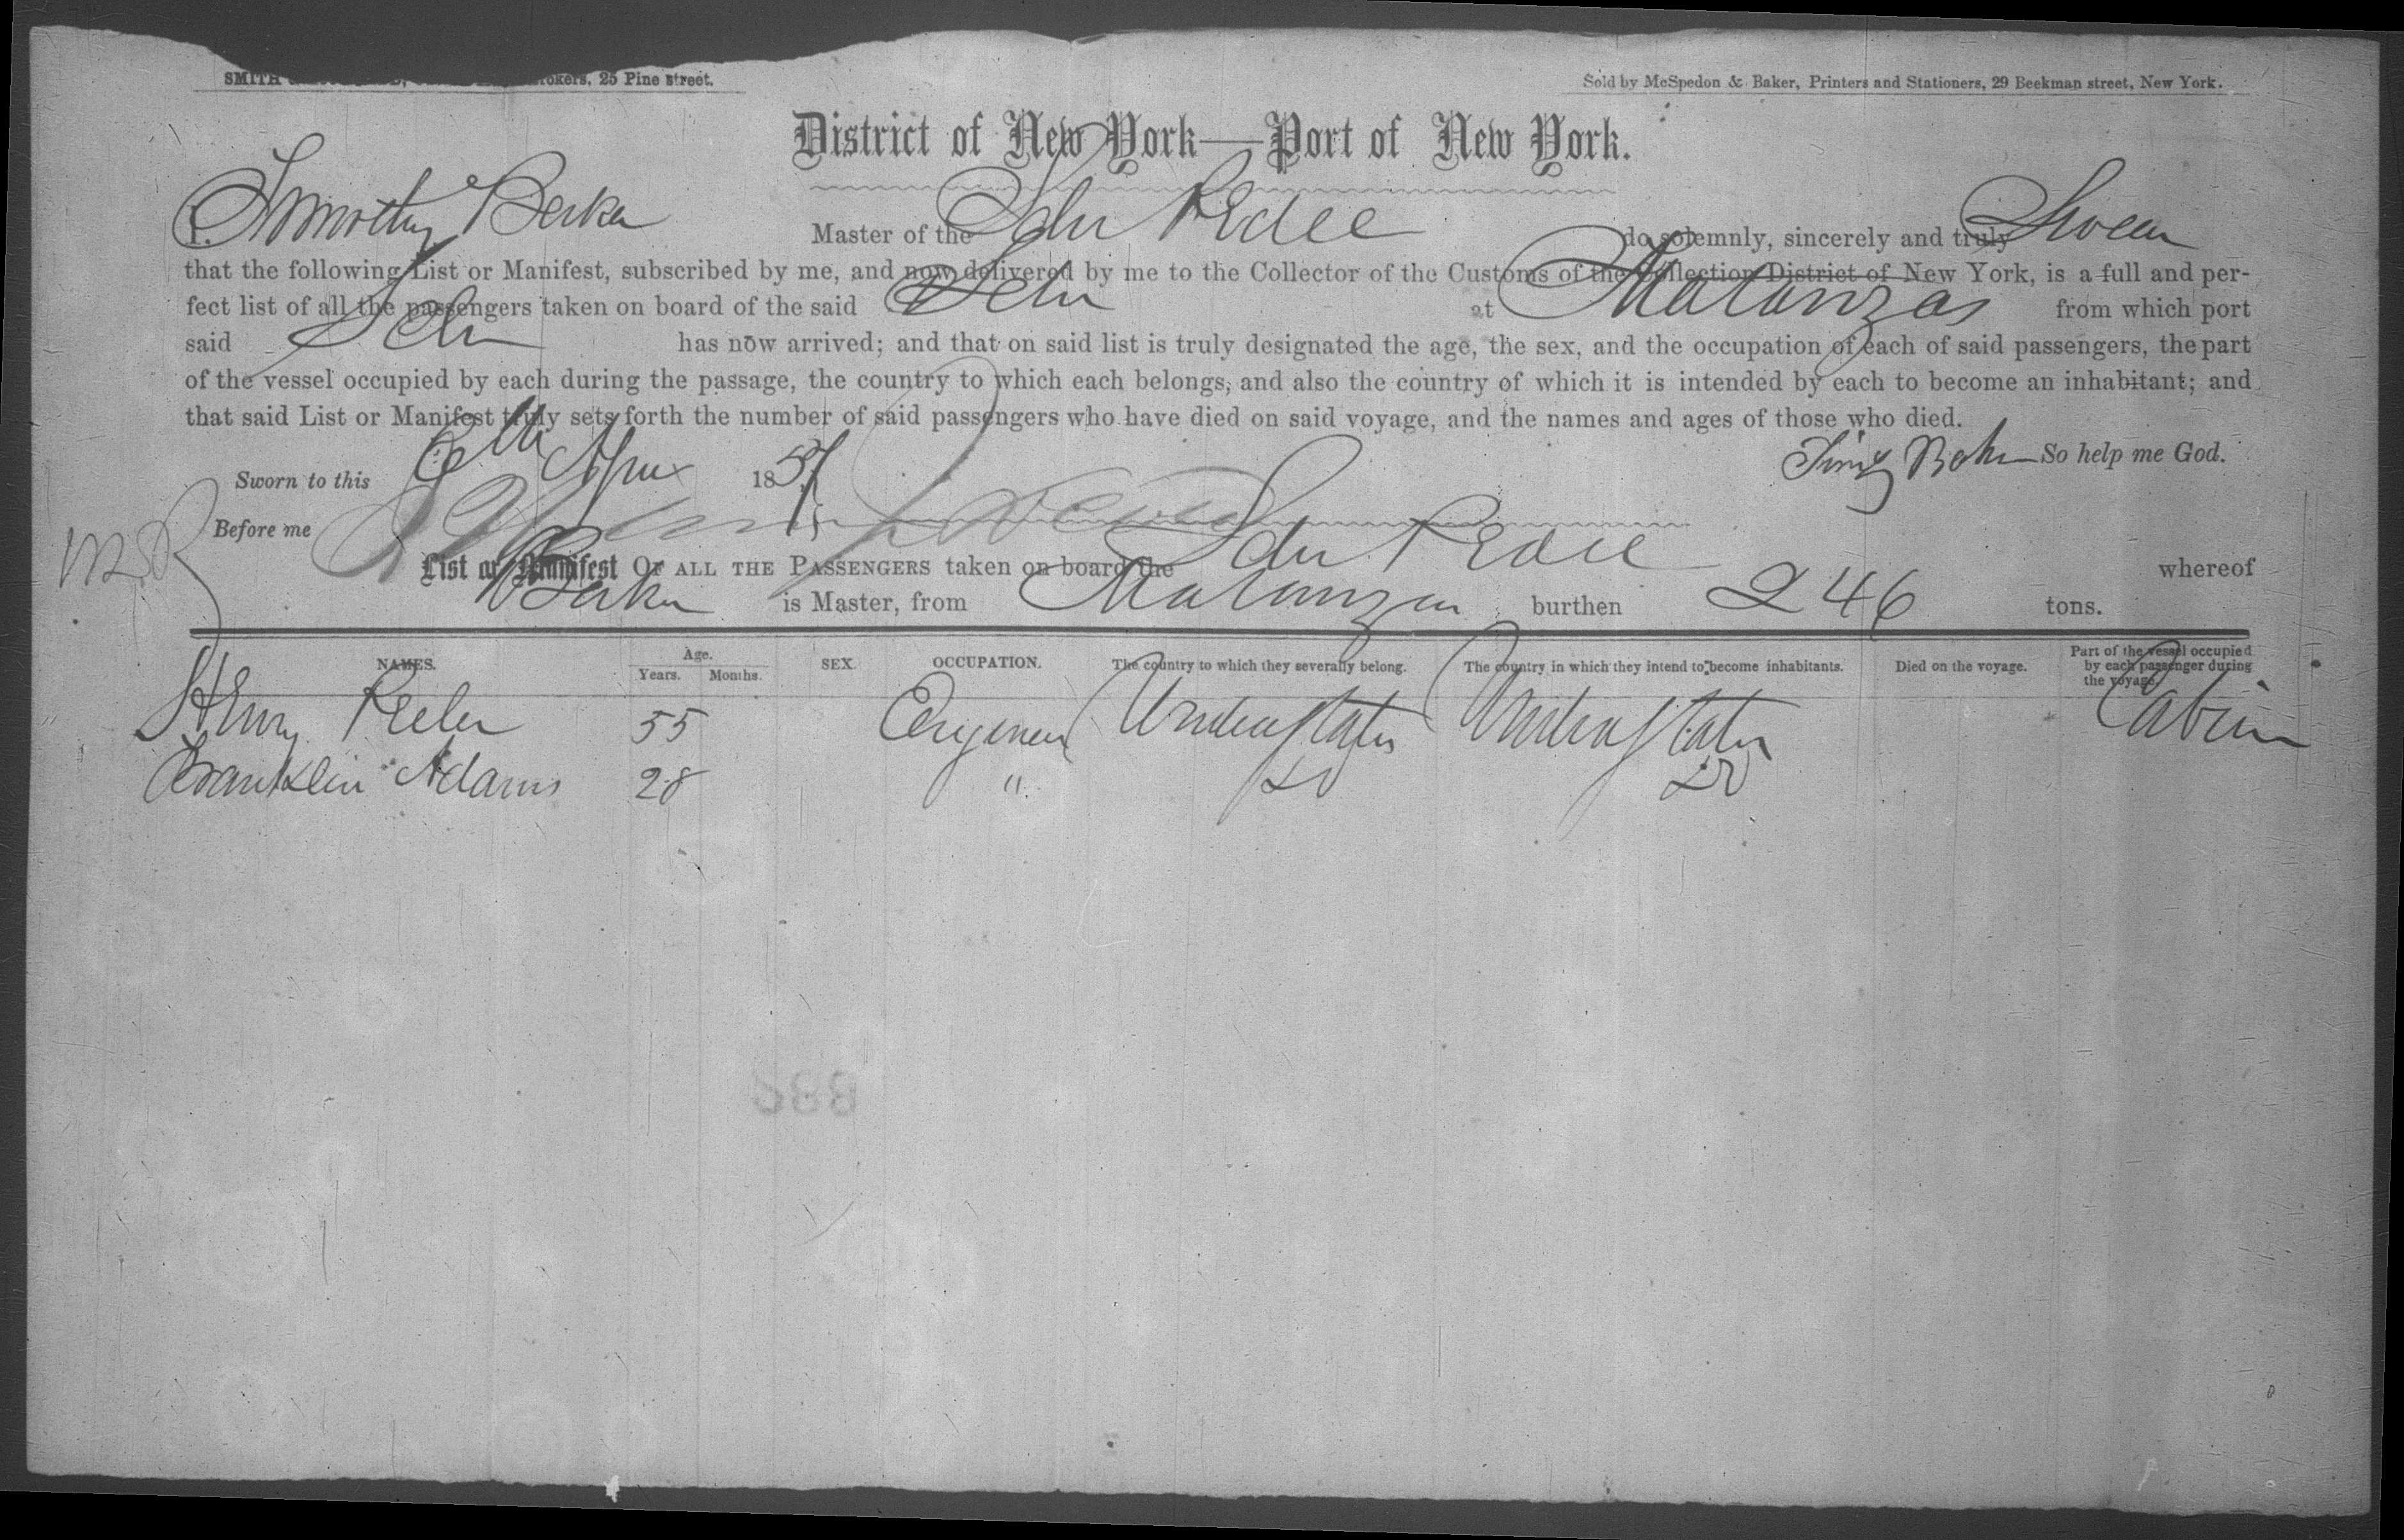 SMITH rokers, 25 Pine street.
Sold by McSpedon & Baker, Printers and Stationers, 29 Beekman street, New York.
District of New York—Port of New York.
I. Timothy Baker Master of the Schr do solemnly, sincerely and truly Swear
that the following List or Manifest, subscribed by me, and now delivered by me to the Collector of the Customs of the Collection District of New York, is a full and per-
fect list of all the passengers taken on board of the said Schr at Matanzas from which port
said Schr has now arrived; and that on said list is truly designated the age, the sex, and the occupation of each of said passengers, the part
of the vessel occupied by each during the passage, the country to which each belongs, and also the country of which it is intended by each to become an inhabitant; and
that said List or Manifest truly sets forth the number of said passengers who have died on said voyage, and the names and ages of those who died.
Timy Baker So help me God.
Sworn to this 6th Apl 1857
Before me
List or Manifest OF ALL THE PASSENGERS taken on board the Schr whereof
Baker is Master, from Matanzas burthen 246 tons.
NAMES. Age. Years. Months. SEX. OCCUPATION. The country to which they severally belong. The country in which they intend to become inhabitants. Died on the voyage. Part of the vessel occupied by each passenger during the voyage.
Henry Keeler 55 Engineer United States United States Cabin
Franklin Adams 28 " Do Do